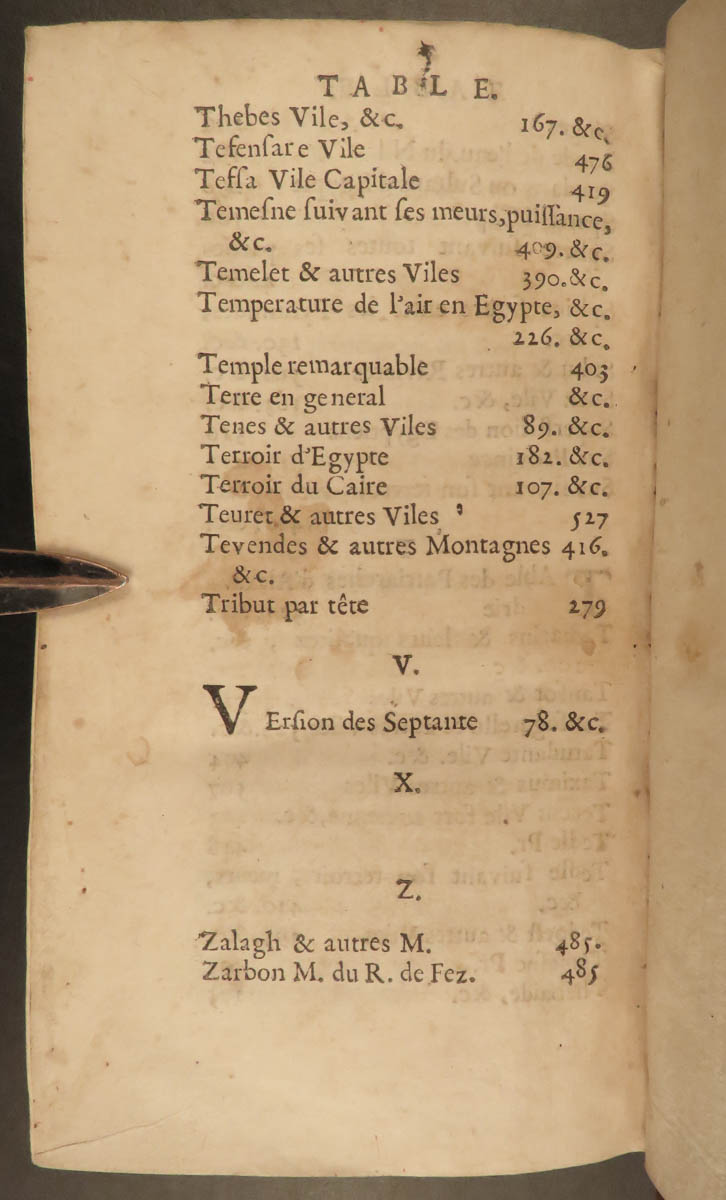 TABLE.
Thebes Vile, &c. 167. &c.
Tefenſare Vile 476
Teſſa Vile Capitale 419
Temeſne ſuivant ſes meurs, puiſſance,
&c. 409. &c.
Temelet & autres Viles 390. &c.
Temperature de l'air en Egypte, &c.
226. &c.
Temple remarquable 403
Terre en general &c.
Tenes & autres Viles 89. &c.
Terroir d'Egypte 182. &c.
Terroir du Caire 107. &c.
Teuret & autres Viles 527
Tevendes & autres Montagnes 416.
&c.
Tribut par tête 279
V.
VErſion des Septante 78. &c.
X.
Z.
Zalagh & autres M. 485.
Zarbon M. du R. de Fez. 485